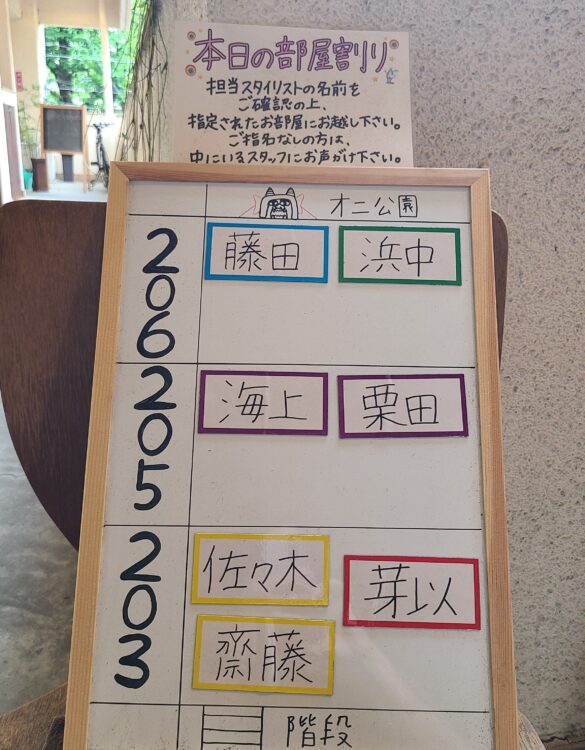 本日の部屋割り
担当スタイリストの名前を
ご確認の上、
指定されたお部屋にお越し下さい。
ご指名なしの方は、
中にいるスタッフにお声がけ下さい。
オニ公園
206
藤田 浜中
205
海上 栗田
203
佐々木 芽以
齋藤
階段